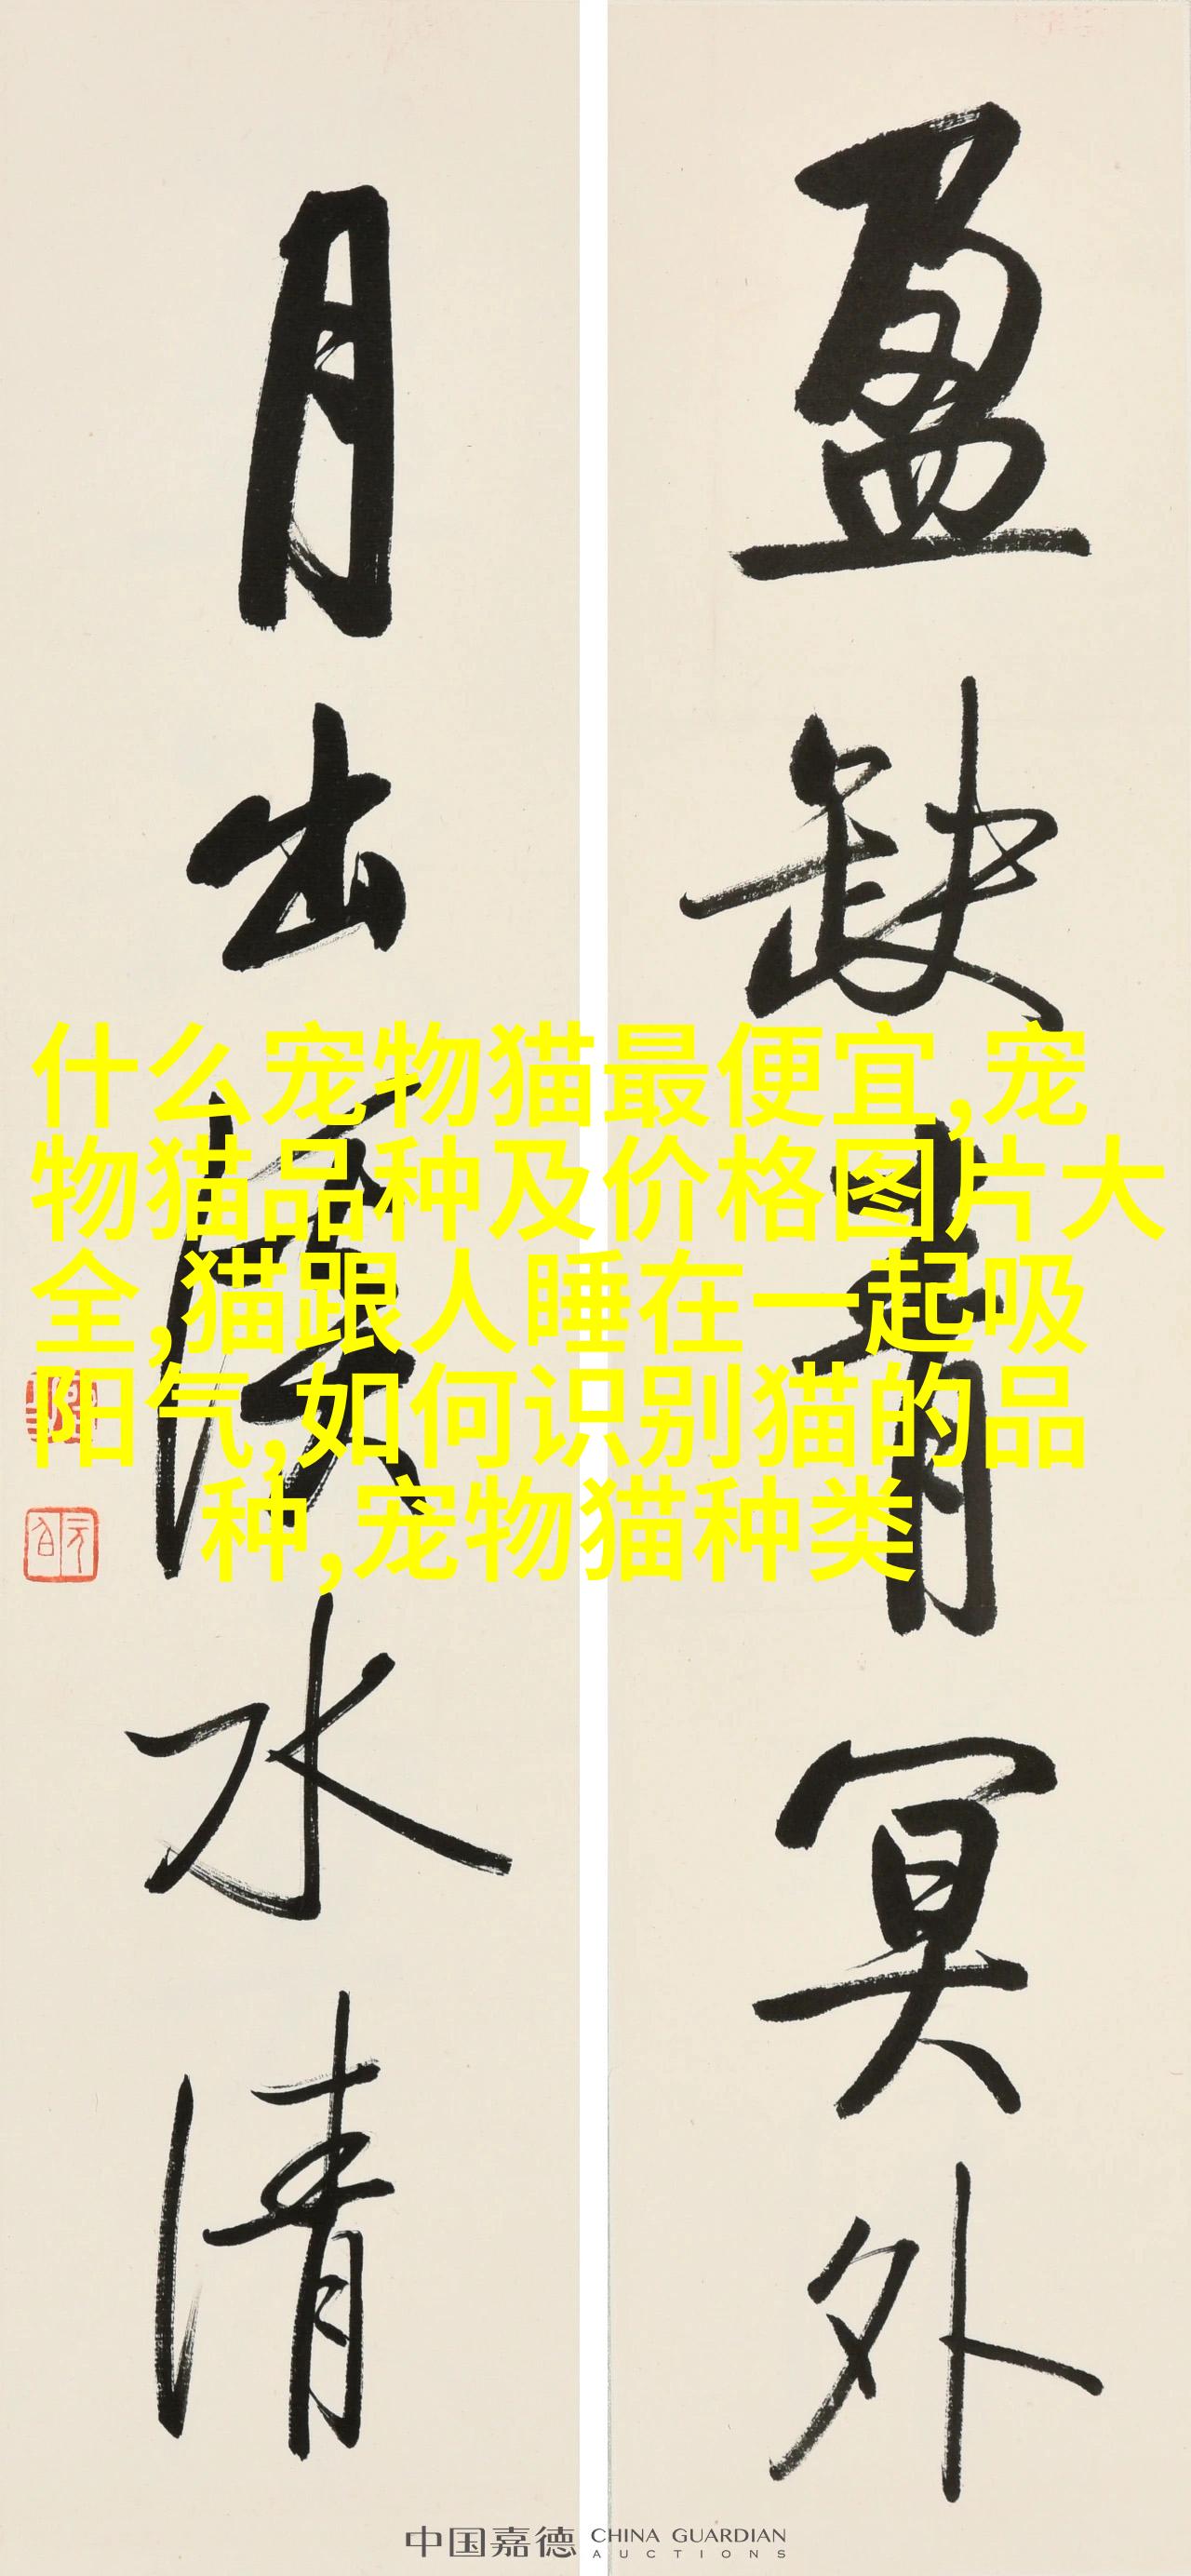 盈缺青冥外
月出 水清
元白
什么宠物猫最便宜,宠
物猫品种及价格图片大
全,猫跟人睡在一起吸
阳气,如何识别猫的品
种,宠物猫种类
中国嘉德 CHINA GUARDIAN
AUCTIONS